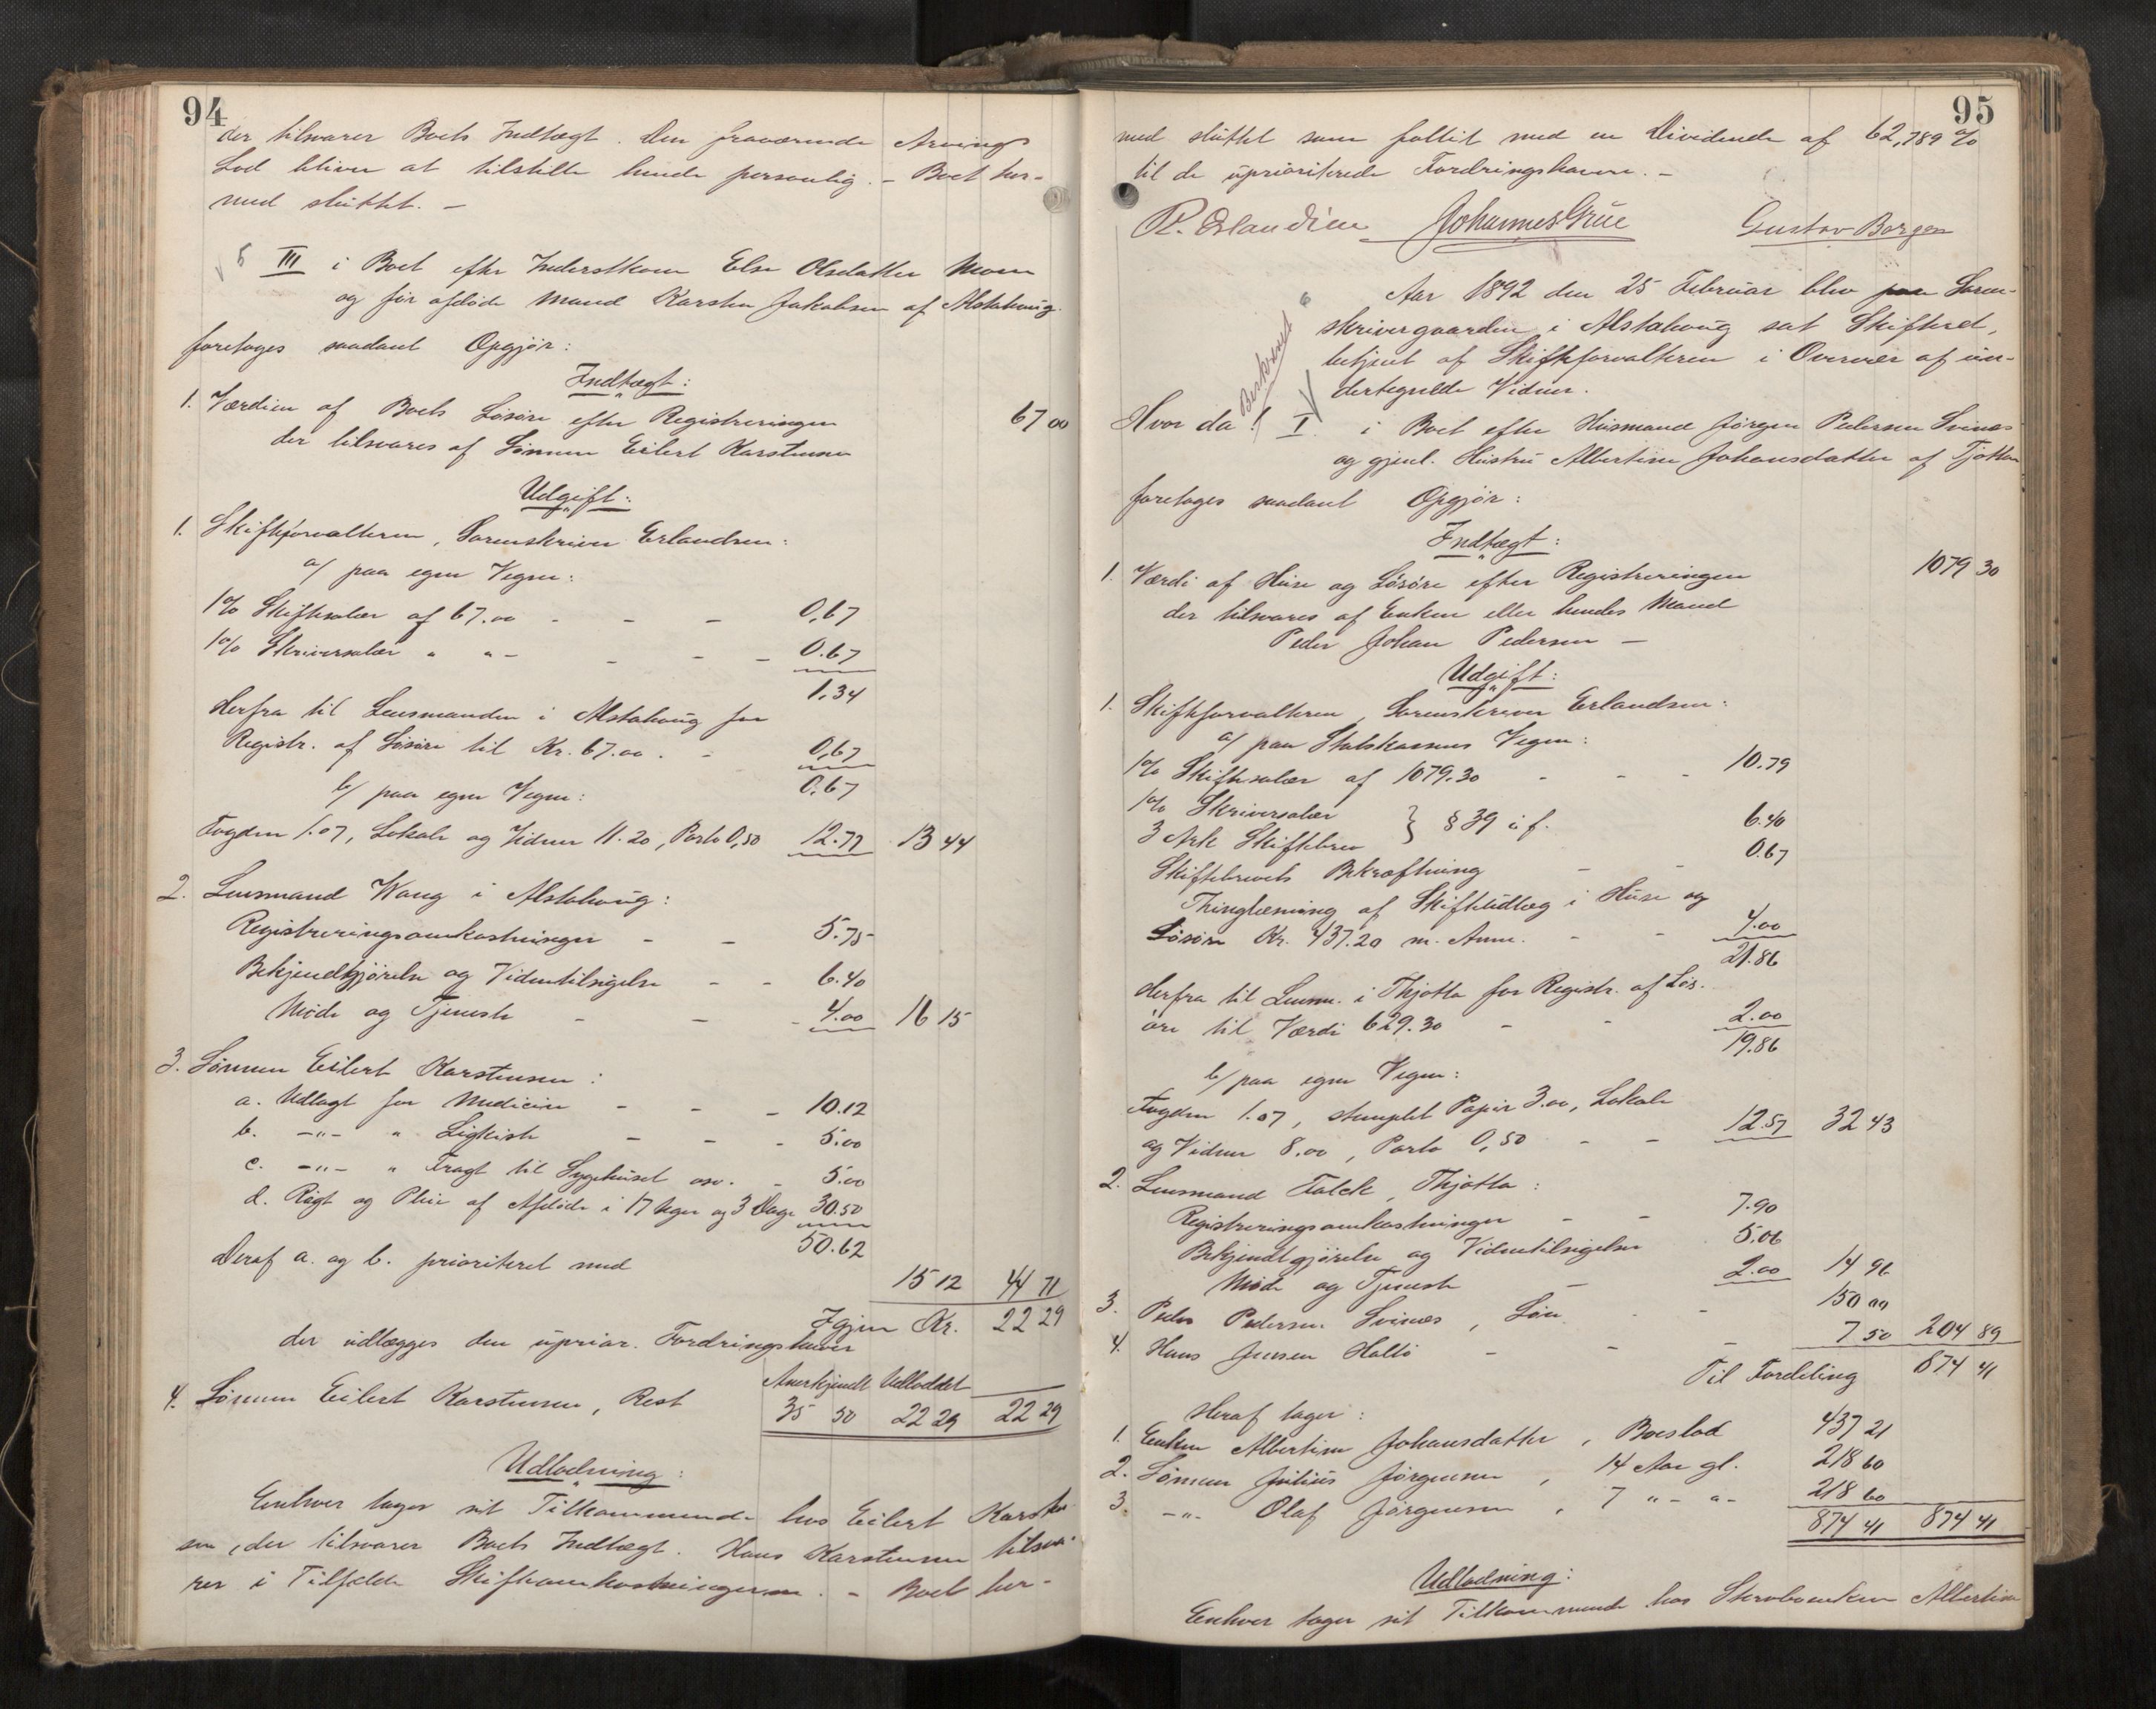 94
der tilsvarer Boets Indtægt. Den fraværende Arvings
Lod bliver at tilstille hende personlig. – Boet her-
med sluttet. –
III i Boet efter Inderstkone Else Olsdatter Moen
og før afdøde Mand Karsten Jakobsen af Alstahoug
foretoges saadant Opgjør:
Indtægt:
1. Værdien af Boets Løsøre efter Registreringen 67 00
der tilsvares af Sønnen Eilert Karstensen
Udgift:
1. Skifteforvalteren, Sorenskriver Erlandsen:
a/ paa egne Vegne:
1% Skiftesalær af 67.00 - - - 0,67
1% Skriversalær " " - - - - 0.67
1,34
derfra til Lensmanden i Alstahoug for
Registr. af Løsøre til Kr. 67.00. - 0,67
0.67
b/ paa egne Vegne:
Fogden 1.07, Lokale og Vidner 11.20, Porto 0,50 12.77 13 44
2. Lensmand Wang i Alstahoug:
Registreringsomkostninger - - 5.75
Bekjendtgjørelse og Vidnetilsigelse - - 6.40
Møde og Tjeneste - - - 4.00 16 15
3. Sønnen Eilert Karstensen:
a. Udlagt for Medicin - - - 10.12
b. -"- " Ligkiste - - - 5.00
c. -"- " Fragt til Sygehuset osv. - 5.00
d. Røgt og Pleie af Afdøde i 17 Uger og 3 Dage 30.50
50.62
Deraf a. og b. prioriteret med
15 12 44 71
Igjen Kr. 22 29
der udlægges den uprior. Fordringshaver
Anerkjendt Udloddet
4. Sønnen Eilert Karstensen, Rest 35 50 22 29 22 29
Udlodning:
Enhver tager sit Tilkommende hos Eilert Karsten-
sen, der tilsvarer Boets Indtægt. Hans Karstensen tilsva-
rer i Tilfælde Skifteomkostningerne. – Boet her-
95
med sluttet som fallit med en Dividende af 62,789 %
til de uprioriterede Fordringshavere. –
R. Erlandsen Johannes Grüe Gustav Borgen
Aar 1892 den 25 Februar blev paa Soren-
skrivergaarden i Alstahoug sat Skifteret,
betjent af Skifteforvalteren i Overvær af un-
dertegnede Vidner.
Beskrevet
Hvor da: I i Boet efter Husmand Jørgen Pedersen Svinæs
og gjenl. Hustru Albertine Johansdatter af Tjøtta
foretoges saadant Opgjør:
Indtægt:
1. Værdi af Huse og Løsøre efter Registreringen 1079 30
der tilsvares af Enken eller hendes Mand
Peder Johan Pedersen –
Udgift:
1. Skifteforvalteren, Sorenskriver Erlandsen:
a/ paa Statskassens Vegne:
1% Skiftesalær af 1079.30 - - - 10.79
1% Skriversalær
3 Ark Skiftebrev } § 39 i.f. 6.40
Skiftebrevets Bekræftning - - 0.67
Thinglæsning af Skifteudlæg i Huse og
Løsøre Kr. 437.20 m. Anm. - - 4.00
21.86
derfra til Lensm. i Thjøtta for Registr. af Løs-
øre til Værdi 629.30 - - 2.00
19.86
b/ paa egne Vegne:
Fogden 1.07, stemplet Papir 3.00, Lokale
og Vidner 8.00, Porto 0,50 - - 12.57 32 43
2. Lensmand Falck, Thjøtta:
Registreringsomkostninger - - 7.90
Bekjendtgjørelse og Vidnetilsigelser 5.06
Møde og Tjeneste - 2.00 14 96
3. Peder Pedersen Svinæs, Løn - - 150 00
4. Hans Jensen Haltø - - - 7 50 204 89
Til Fordeling 874 41
Heraf tager:
1. Enken Albertine Johansdatter, Boeslod 437 21
2. Sønnen Julius Jørgensen, 14 Aar gl. 218 60
3. -"- Olaf Jørgensen, 7 "- "- 218 60
874 41 874 41
Udlodning:
Enhver tager sit Tilkommende hos Stervboenken Albertine